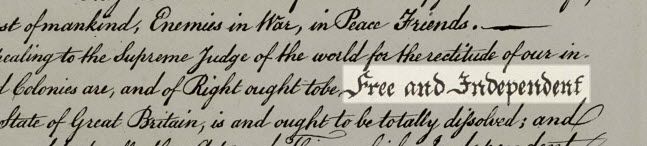 st of mankind, Enemies in War, in Peace Friends.
pealing to the Supreme Judge of the world for the rectitude of our in-
d Colonies are, and of Right ought to be Free and Independent
State of Great Britain, is and ought to be totally dissolved; and